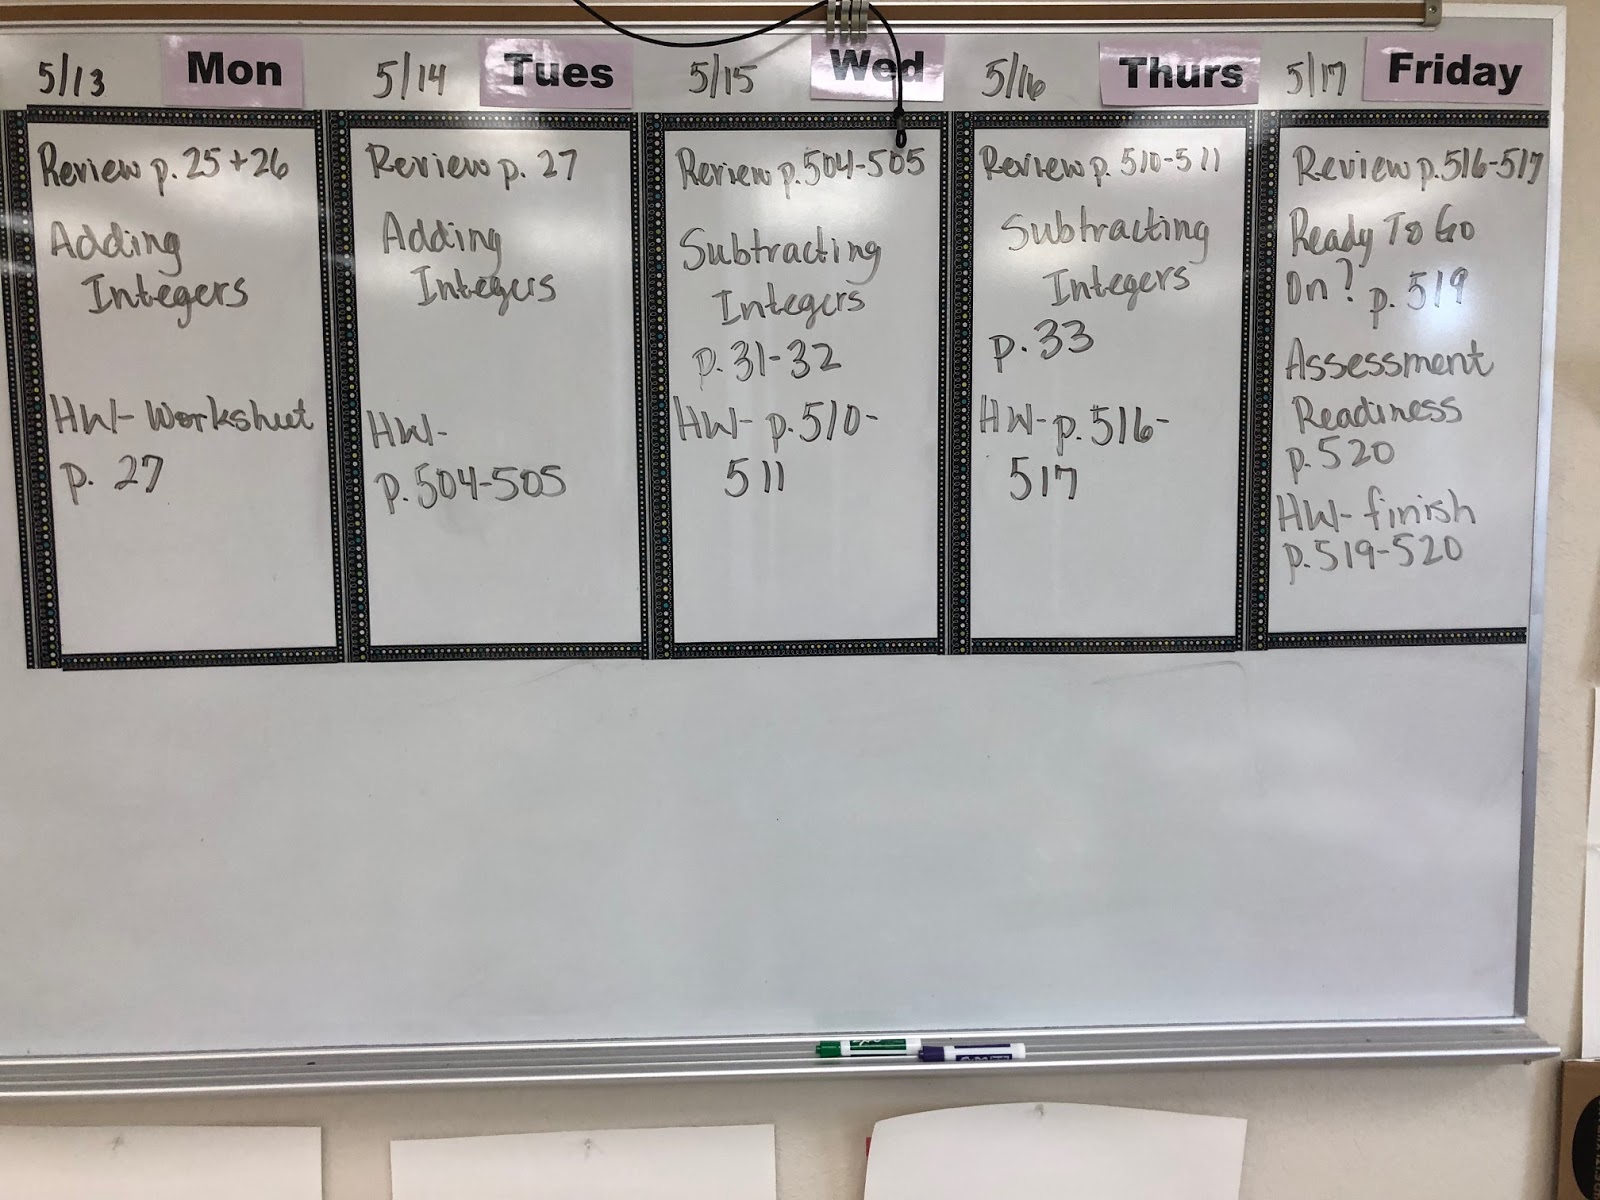 5/13 Mon
Review p. 25 + 26
Adding
Integers
HW- Worksheet
p. 27
5/14 Tues
Review p. 27
Adding
Integers
HW-
p. 504-505
5/15 Wed
Review p. 504-505
Subtracting
Integers
p. 31-32
HW- p. 510-
511
5/16 Thurs
Review p. 510-511
Subtracting
Integers
p. 33
HW- p. 516-
517
5/17 Friday
Review p. 516-517
Ready To Go
On? p. 519
Assessment
Readiness
p. 520
HW- finish
p. 519-520